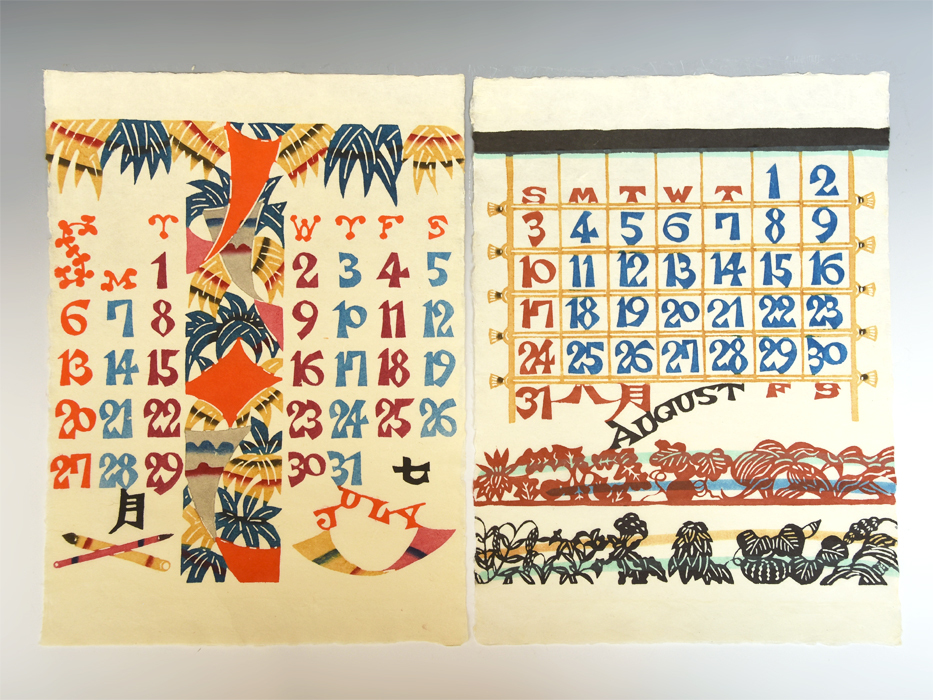 T W T F S
M 1 2 3 4 5
6 7 8 9 10 11 12
13 14 15 16 17 18 19
20 21 22 23 24 25 26
27 28 29 30 31 七
月 JULY
S M T W T 1 2
3 4 5 6 7 8 9
10 11 12 13 14 15 16
17 18 19 20 21 22 23
24 25 26 27 28 29 30
31 八月 F S
AUGUST